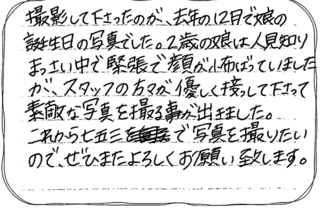 撮影して下さったのが、去年の12月で娘の
誕生日の写真でした。2歳の娘は人見知り
まっさい中で緊張で顔がこわばっていました
が、スタッフの方々が優しく接して下さって
素敵な写真を撮る事が出来ました。
これから七五三をで写真を撮りたい
ので、ぜひまたよろしくお願い致します。